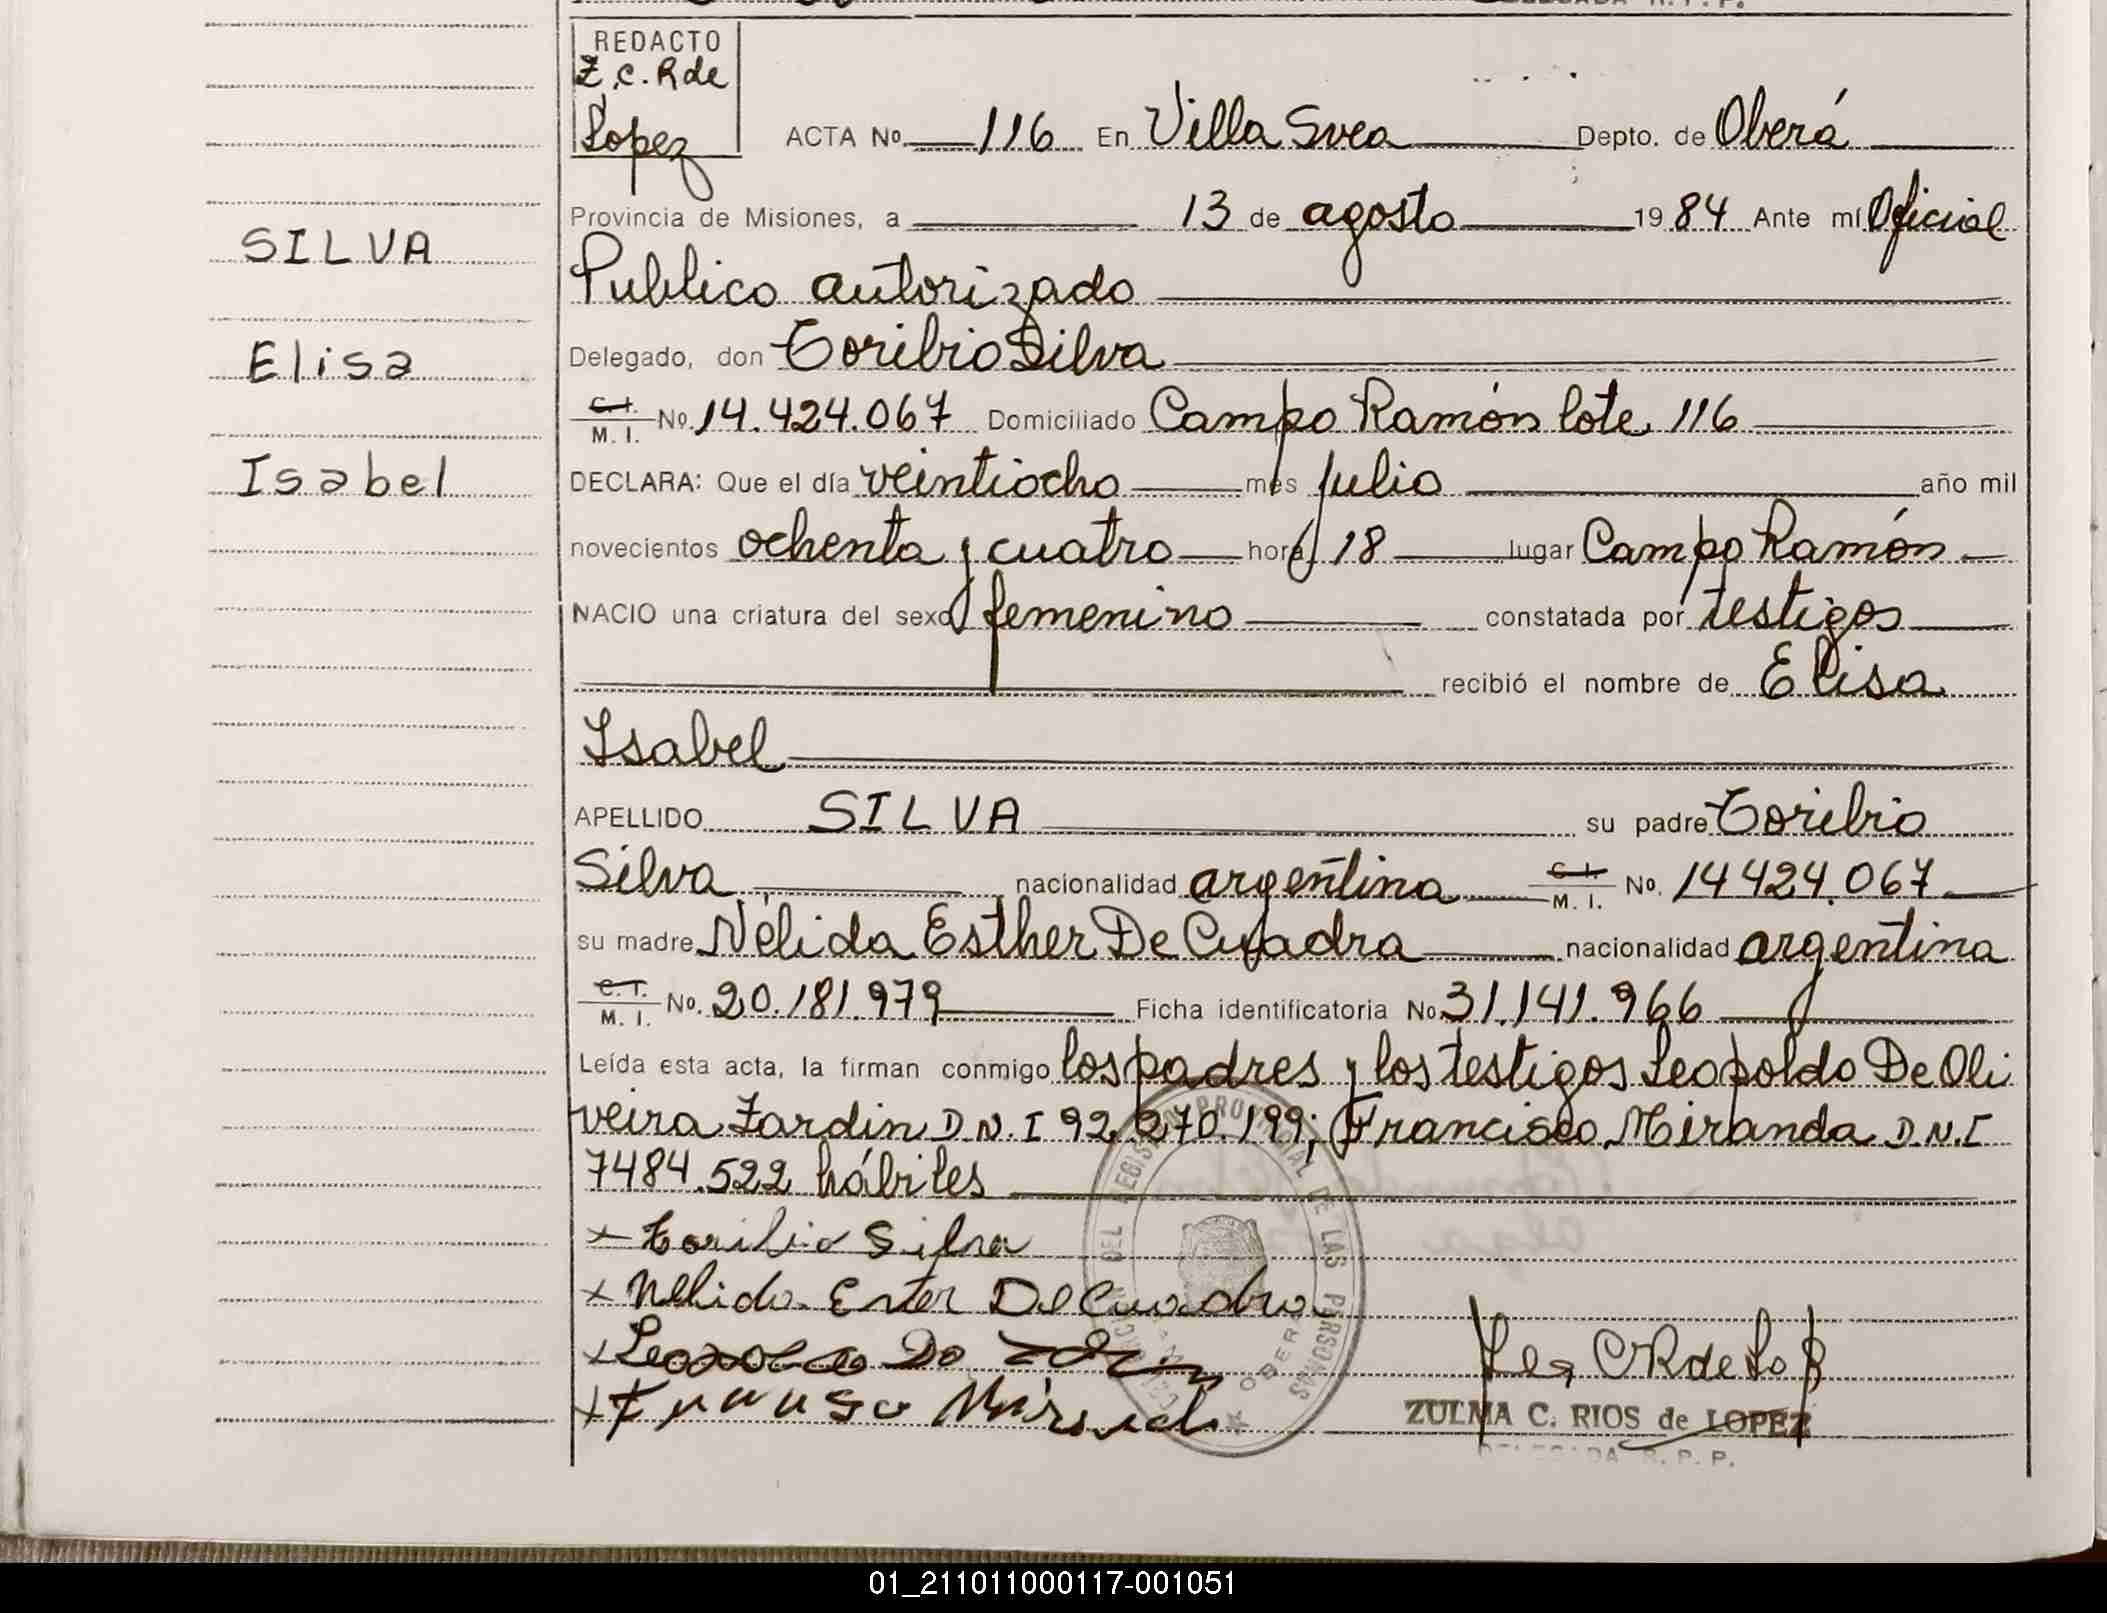 REDACTO
Z.C.R de
Lopez
ACTA No. 116 En Villa Svea Depto. de Oberá
Provincia de Misiones, a 13 de agosto 1984 Ante mí Oficial
SILVA
Publico autorizado
Elisa
Delegado, don Toribio Silva
C. I. M. I. No. 14.424.067 Domiciliado Campo Ramón lote 116
Isabel
DECLARA: Que el día veintiocho mes julio año mil
novecientos ochenta y cuatro hora 18 lugar Campo Ramón
NACIO una criatura del sexo femenino constatada por testigos
recibió el nombre de Elisa
Isabel
APELLIDO SILVA su padre Toribio
Silva nacionalidad argentina C. I. M. I. No. 14424.067
su madre Nélida Esther De Cuadra nacionalidad argentina
C. I. M. I. No. 20.181.979 Ficha identificatoria No 31.141.966
Leída esta acta, la firman conmigo los padres y los testigos Leopoldo De Oli
veira Zardin D.N.I 92.270.199; Francisco Miranda D.N.I
7484.522 hábiles
x Toribio Silva
x Nelida Ester De Cuadra
ZULMA C. RIOS de LOPEZ
DELEGADA R. P. P.
DEL REGISTRO PROVINCIAL DE LAS PERSONAS
OBERA
01_211011000117-001051